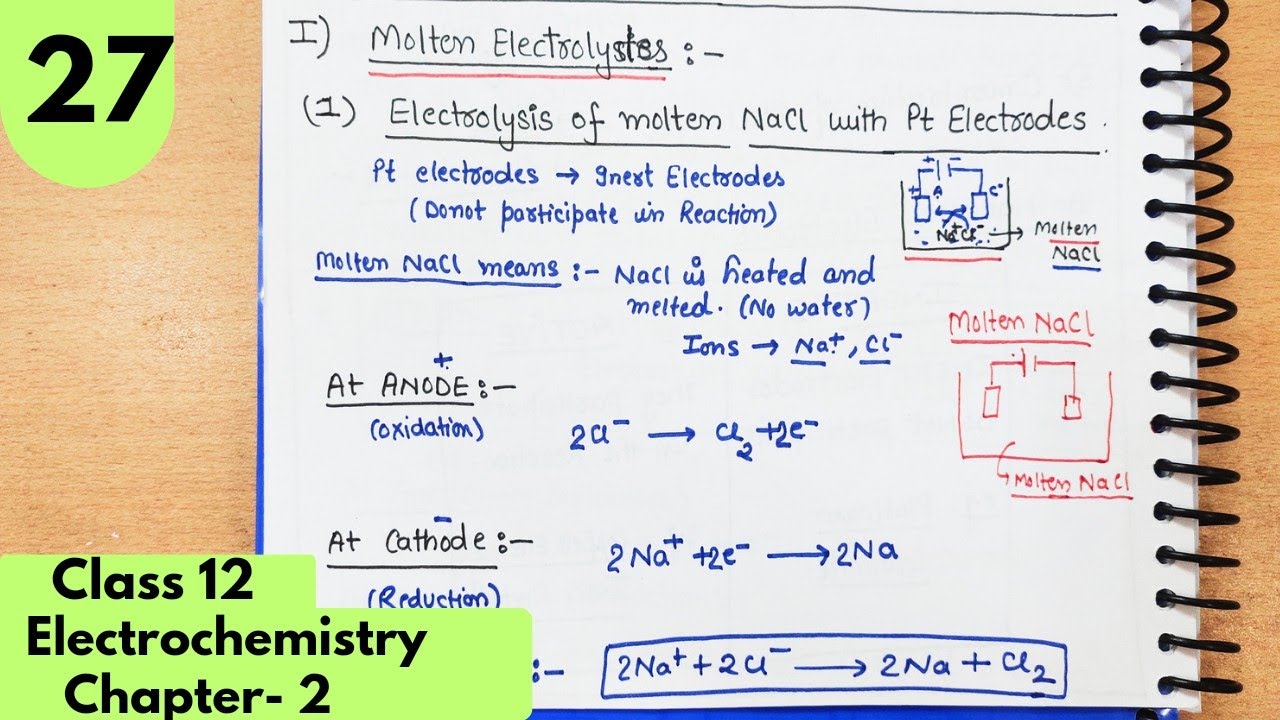 27
I) Molten Electrolytes :-
(1) Electrolysis of molten NaCl with Pt Electrodes.
Pt electrodes → Inert Electrodes
(Donot participate in Reaction)
+ −
+ A C-
Na+ Cl−
→ Molten
NaCl
Molten NaCl means :- NaCl is heated and
melted. (No water)
Ions → Na+, Cl−
Molten NaCl
Molten NaCl
+
At ANODE :-
(oxidation)
2Cl− → Cl2 + 2e−
−
At Cathode :-
(Reduction)
2Na+ + 2e− → 2Na
:- 2Na+ + 2Cl− → 2Na + Cl2
Class 12
Electrochemistry
Chapter- 2